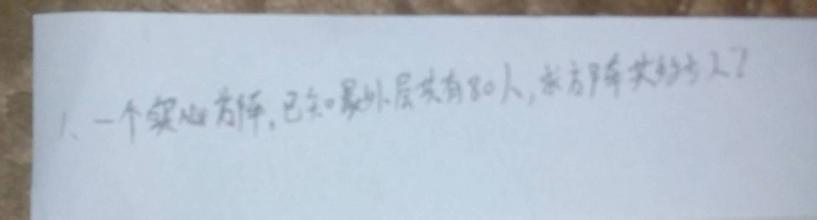 1、一个实心方阵,已知最外层共有80人,求方阵共多少人?